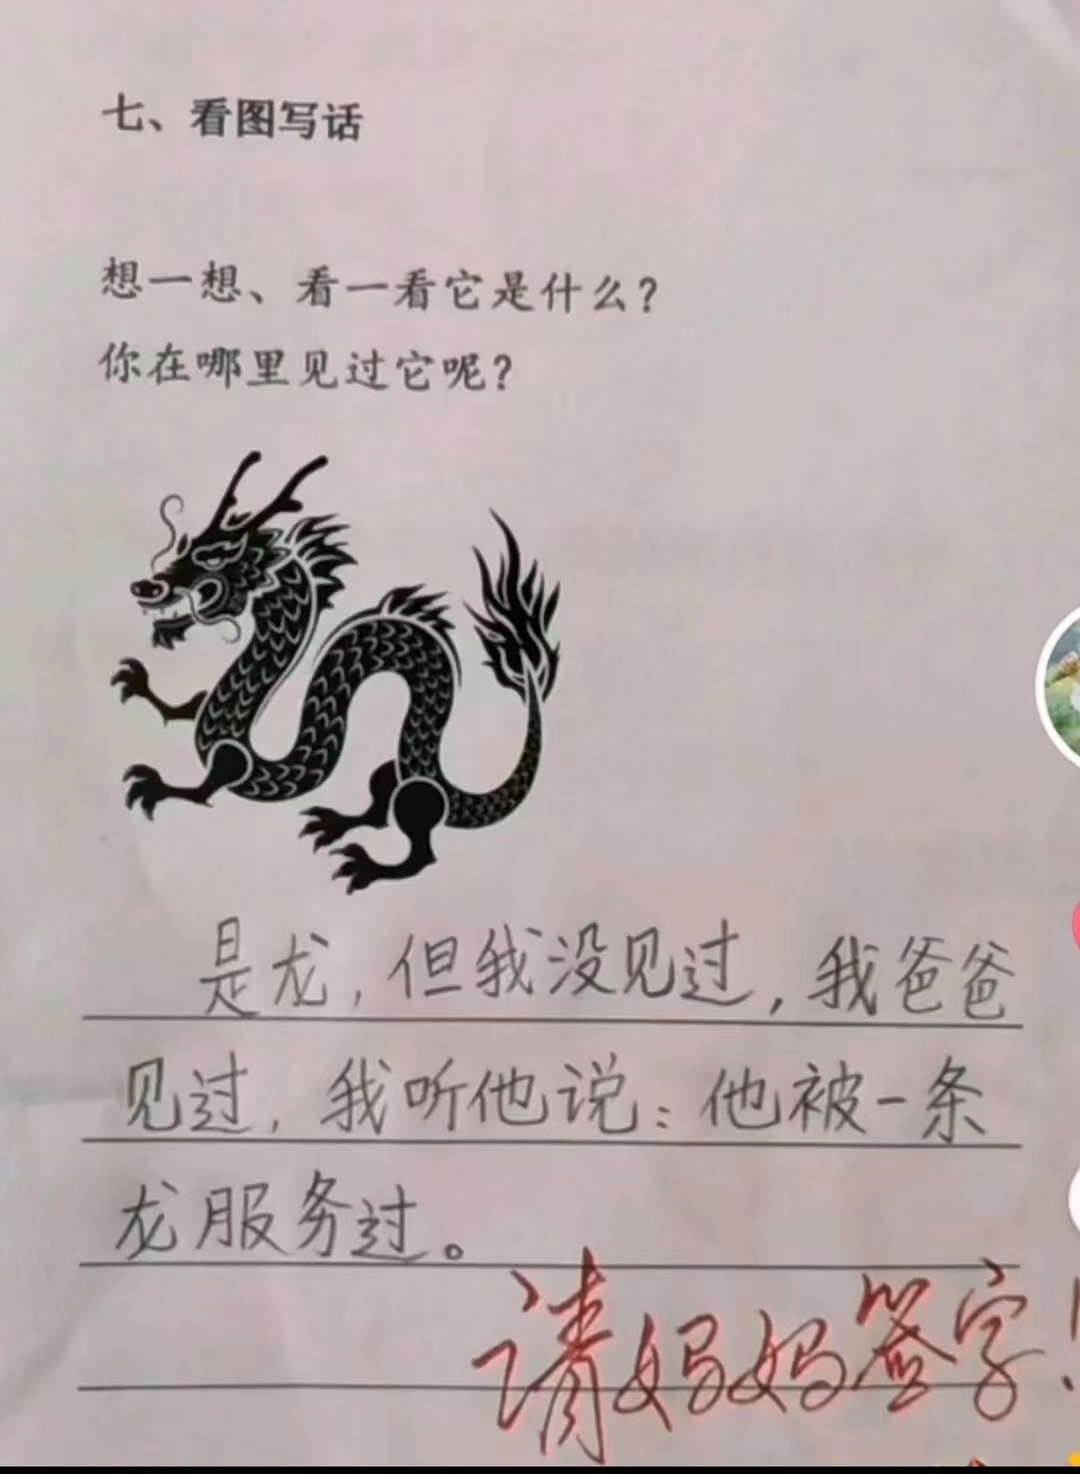 七、看图写话
想一想、看一看它是什么?
你在哪里见过它呢?
是龙，但我没见过，我爸爸
见过，我听他说：他被一条
龙服务过。
请妈妈签字!